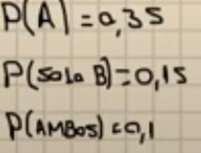 P(A) = 0,35
P(SOLO B) = 0,15
P(AMBOS) = 0,1